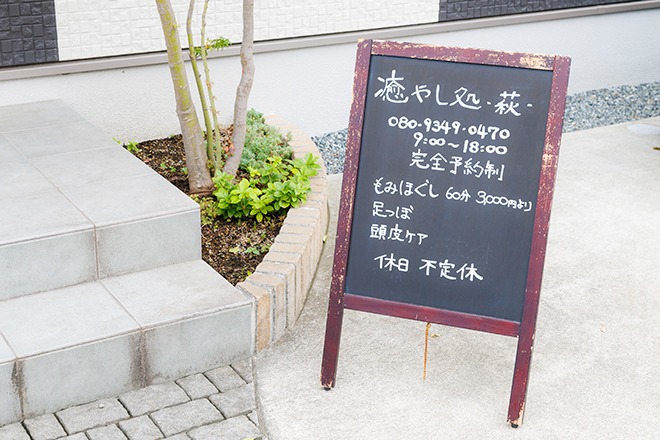 癒やし処-萩-
080-9349-0470
9:00~18:00
完全予約制
もみほぐし 60分 3,000円より
足つぼ
頭皮ケア
休日 不定休